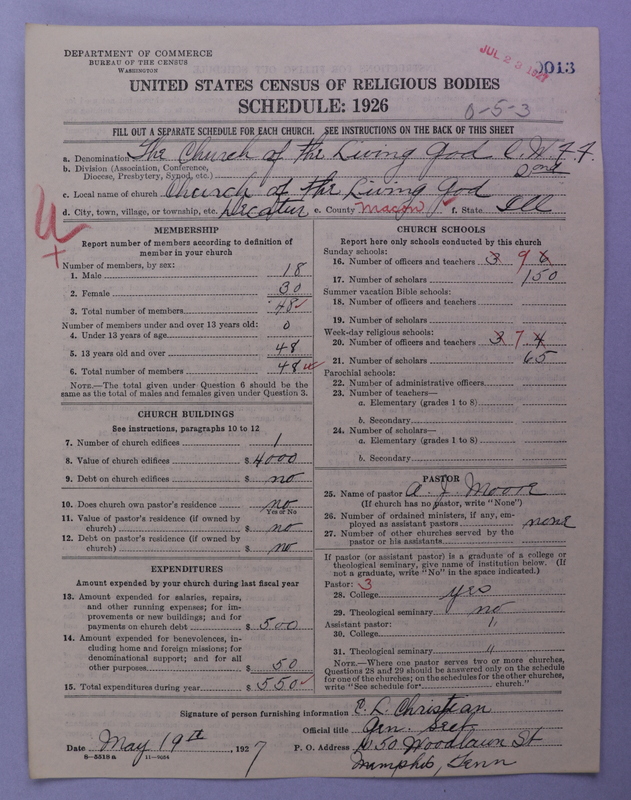 DEPARTMENT OF COMMERCE
BUREAU OF THE CENSUS
WASHINGTON
JUL 23 1927
0013
UNITED STATES CENSUS OF RELIGIOUS BODIES
SCHEDULE: 1926
0-5-3
FILL OUT A SEPARATE SCHEDULE FOR EACH CHURCH. SEE INSTRUCTIONS ON THE BACK OF THIS SHEET
a. Denomination The Church of the Living God C. W. F. F.
b. Division (Association, Conference, Diocese, Presbytery, Synod, etc.)
c. Local name of church Church of the Living God
d. City, town, village, or township, etc. Decatur e. County Macon f. State Ill
MEMBERSHIP
Report number of members according to definition of member in your church
Number of members, by sex:
1. Male 18
2. Female 30
3. Total number of members 48
Number of members under and over 13 years old:
4. Under 13 years of age 0
5. 13 years old and over 48
6. Total number of members 48
NOTE.—The total given under Question 6 should be the same as the total of males and females given under Question 3.
CHURCH BUILDINGS
See instructions, paragraphs 10 to 12
7. Number of church edifices 1
8. Value of church edifices $ 4000
9. Debt on church edifices $ no
10. Does church own pastor's residence no
Yes or No
11. Value of pastor's residence (if owned by church) $ no
12. Debt on pastor's residence (if owned by church) $ no
EXPENDITURES
Amount expended by your church during last fiscal year
13. Amount expended for salaries, repairs, and other running expenses; for improvements or new buildings; and for payments on church debt $ 500
14. Amount expended for benevolences, including home and foreign missions; for denominational support; and for all other purposes $ 50
15. Total expenditures during year $ 550
CHURCH SCHOOLS
Report here only schools conducted by this church
Sunday schools:
16. Number of officers and teachers 3 9 6
17. Number of scholars 150
Summer vacation Bible schools:
18. Number of officers and teachers
19. Number of scholars
Week-day religious schools:
20. Number of officers and teachers 3 7 4
21. Number of scholars 65
Parochial schools:
22. Number of administrative officers
23. Number of teachers—
a. Elementary (grades 1 to 8)
b. Secondary
24. Number of scholars—
a. Elementary (grades 1 to 8)
b. Secondary
PASTOR
25. Name of pastor A. J. Moore
(If church has no pastor, write "None")
26. Number of ordained ministers, if any, employed as assistant pastors none
27. Number of other churches served by the pastor or his assistants
If pastor (or assistant pastor) is a graduate of a college or theological seminary, give name of institution below. (If not a graduate, write "No" in the space indicated.)
Pastor: 3
28. College yes
29. Theological seminary no
Assistant pastor: "
30. College
31. Theological seminary "
NOTE.—Where one pastor serves two or more churches, Questions 28 and 29 should be answered only on the schedule for one of the churches; on the schedules for the other churches, write "See schedule for church."
Signature of person furnishing information E. L. Christian
Official title Gen. Sect
Date May 19th, 1927 P. O. Address 1450 Woodlawn St
8-5518 a 11-9034
Memphis, Tenn